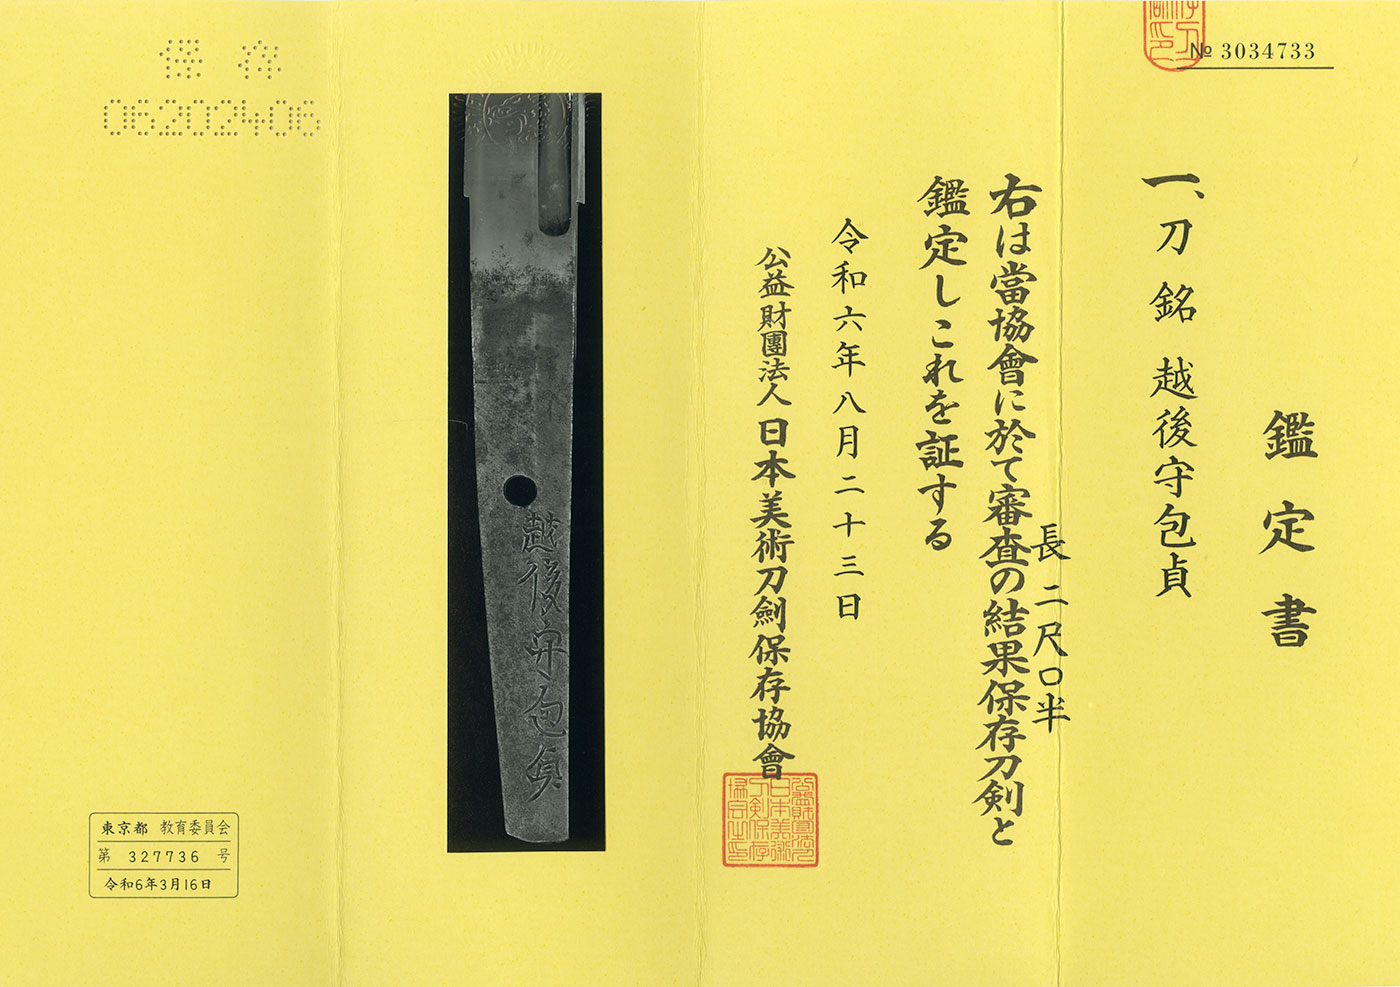 № 3034733
鑑定書
一、刀 銘 越後守包貞
長 二尺〇半
右は當協會に於て審査の結果保存刀剣と
鑑定しこれを証する
令和六年八月二十三日
公益財團法人 日本美術刀劍保存協會
越後守包貞
保存
06202406
東京都 教育委員会
第 327736 号
令和6年3月16日